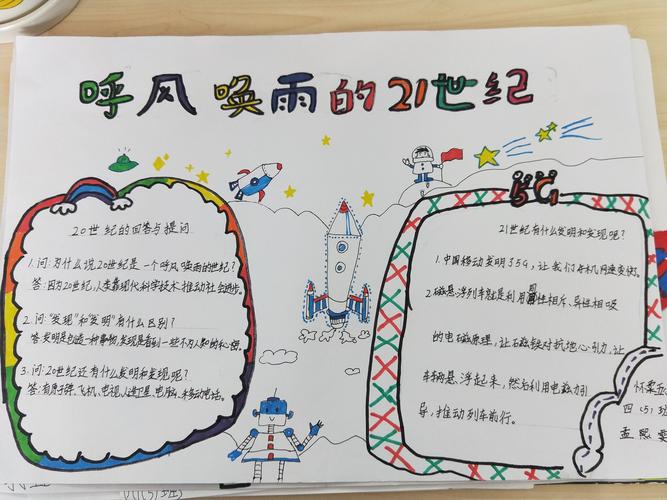 呼风唤雨的21世纪
20世纪的回答与提问
1.问:为什么说20世纪是一个呼风唤雨的世纪?
答:因为20世纪,人类靠现代科学技术推动社会进步。
2.问:"发现"和"发明"有什么区别?
答:发明是创造一种事物,发现是看到一些不为人知的
3.问:20世纪还有什么发明和发现呢?
答:有原子弹、飞机、电视、人造卫星、电脑、移动电话。
5G
21世纪有什么发明和发现呢?
1.中国移动发明了5G,让我们手机网速变快。
2.磁悬浮列车就是利用同性相斥、异性相吸
的电磁原理,让磁铁对抗地心引力,让
车辆悬浮起来,然后利用电磁力引
导,推动列车前行。
怀柔五
四(5)班
孟思